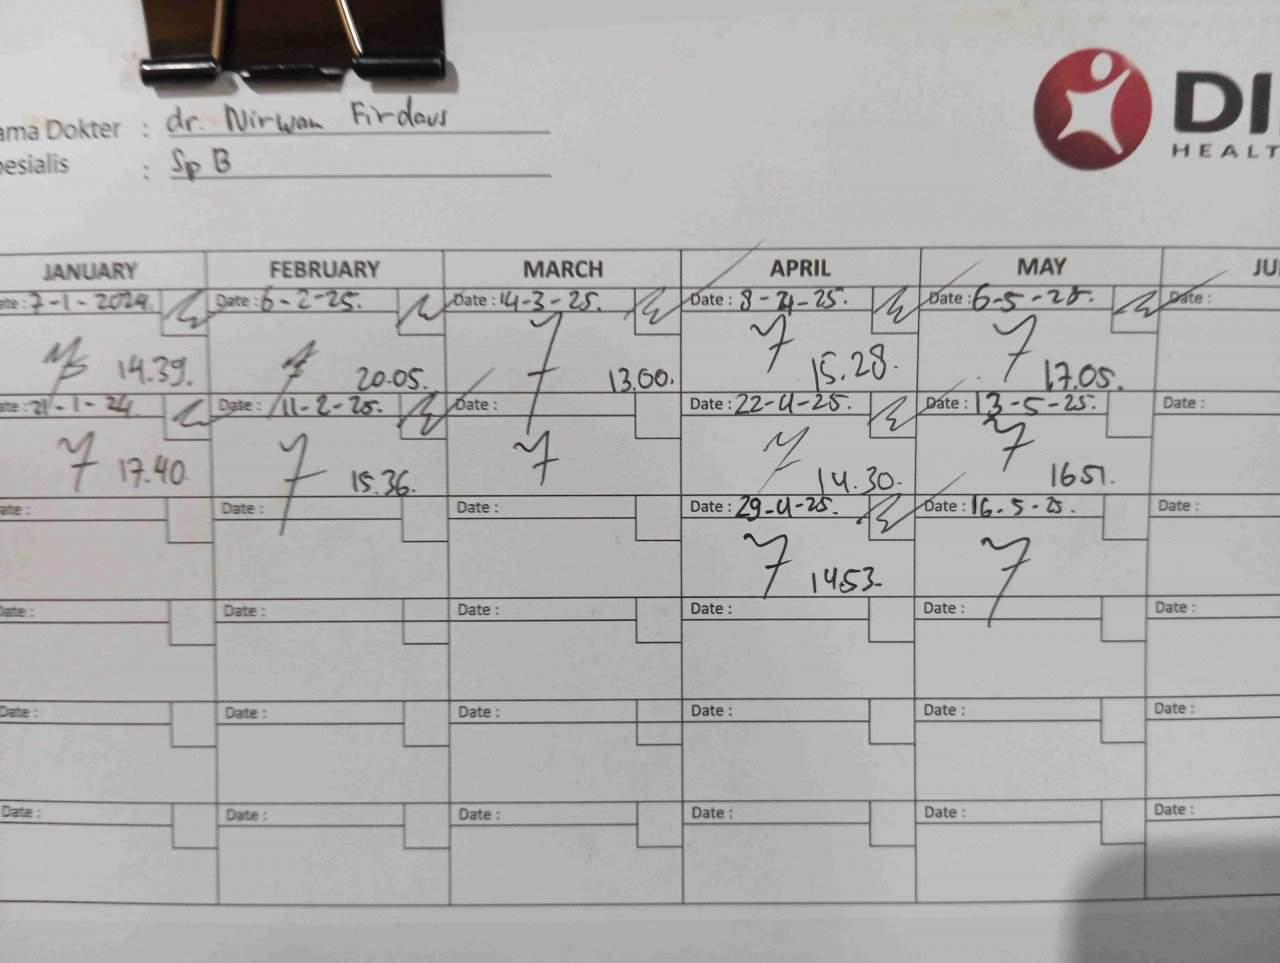 ama Dokter : dr. Nirwan Firdaus
pesialis : Sp B
DI
HEALT
JANUARY FEBRUARY MARCH APRIL MAY JU
ate : 7-1-2024. Date : 6-2-25. Date : 14-3-25. Date : 8-4-25. Date : 6-5-25. Date :
14.39. 20.05. 13.00. 15.28. 17.05.
ate : 21-1-24. Date : 11-2-25. Date : Date : 22-4-25. Date : 13-5-25. Date :
17.40. 15.36. 14.30. 1651.
ate : Date : Date : Date : 29-4-25. Date : 16-5-25. Date :
1453.
Date : Date : Date : Date : Date : Date :
Date : Date : Date : Date : Date : Date :
Date : Date : Date : Date : Date : Date :